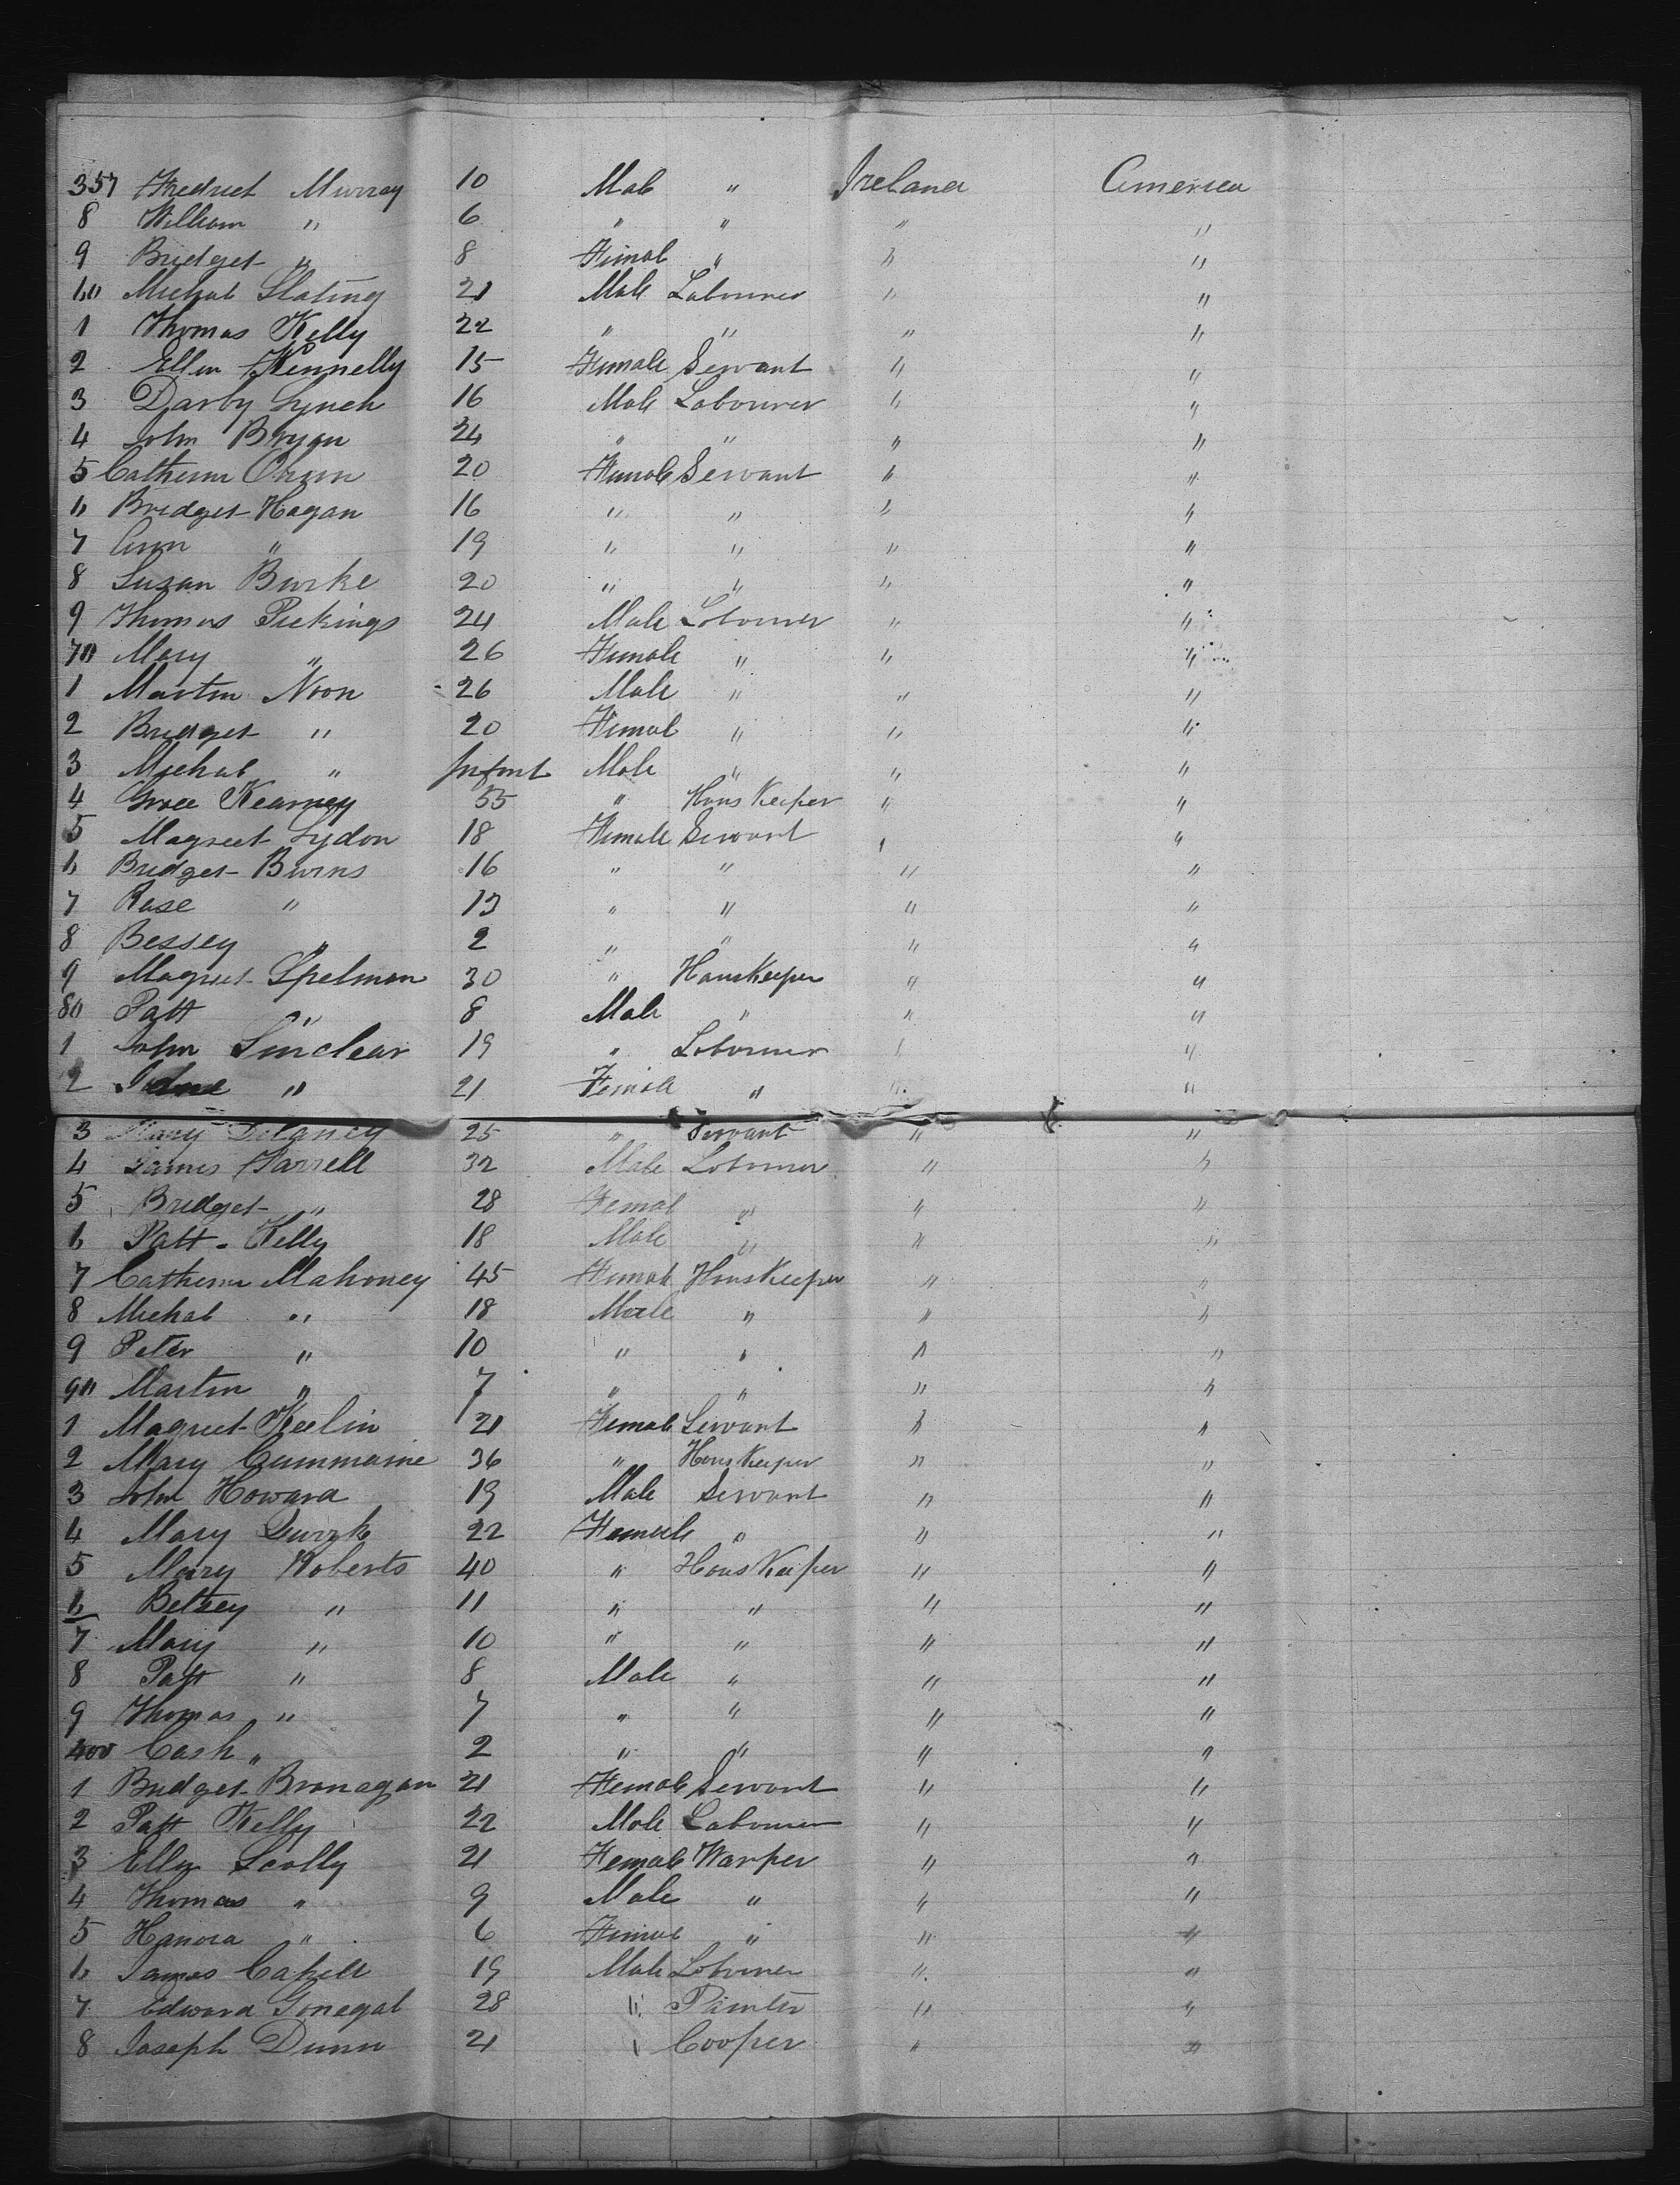 357 Fredrect Murray 10 Male " Ireland America
8 William " 6 " " " "
9 Bridget " 8 Femal " " "
60 Michal Slating 21 Male Labourer " "
1 Thomas Kelly 22 " " " "
2 Ellen Kennelly 15 Female Servant " "
3 Darby Lynch 16 Male Labourer " "
4 John Bryan 24 " " " "
5 Catherin 20 Female Servant " "
6 Bridget Hagan 16 " " " "
7 Ann " 19 " " " "
8 Susan Burke 20 " " " "
9 Thomas Pickings 24 Male Labourer " "
70 Mary " 26 Female " " "
1 Martin Noon 26 Male " " "
2 Bridget " 20 Femal " " "
3 Michal " Infant Male " " "
4 Grace Kearney 55 " Hous Keeper " "
5 Magreet Lydon 18 Female Servant " "
6 Bridget Burns 16 " " " "
7 Rose " 13 " " " "
8 Bessey " 2 " " " "
9 Magreet Spelman 30 " HousKeeper " "
80 Patt " 8 Male " " "
1 John Sinclear 19 " Labourer " "
2 " 21 Female " " "
3 Mary Delaney 25 " Servant " "
4 James Farrell 32 Male Labourer " "
5 Bridget " 28 Femal " " "
6 Patt Kelly 18 Male " " "
7 Catherin Mahoney 45 Femal HousKeeper " "
8 Michal " 18 Male " " "
9 Peter " 10 " " " "
90 Martin " 7 " " " "
1 Magreet Keelin 21 Female Servant " "
2 Mary Cummaine 36 " HousKeeper " "
3 John Howard 19 Male Servant " "
4 Mary 22 Female " " "
5 Mary Roberts 40 " Hous Keeper " "
6 Betsey " 11 " " " "
7 Mary " 10 " " " "
8 Patt " 8 Male " " "
9 Thomas " 7 " " " "
400 Cash " 2 " " " "
1 Bridget Branagan 21 Female Servant " "
2 Patt Kelly 22 Male Labourer " "
3 Ellen Scolly 21 Female Warper " "
4 Thomas " 9 Male " " "
5 Hanora " 6 Femal " " "
6 James Cahill 19 Male Labourer " "
7 Edward Gonegal 28 " Painter " "
8 Joseph Dunn 21 " Cooper " "